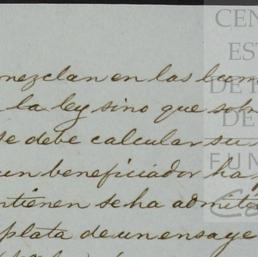 mezclan en las
la ley sino que sob
se debe calcular su
un beneficiador ha
ntienen se ha admit
plata de un ensaye
CEN
EST
DE
DE
FUN